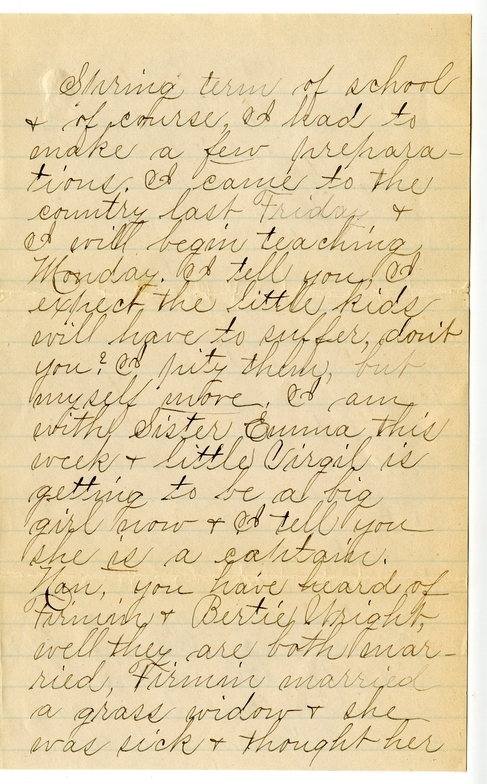 Spring term of school
& of course, I had to
make a few prepara-
tions. I came to the
country last Friday &
I will begin teaching
Monday. I tell you, I
expect the little kids
will have to suffer, don't
you? I pity them, but
myself more. I am
with Sister Emma this
week & little Virgil is
getting to be a big
girl now & I tell you
she is a captain.
Nan, you have heard of
Firmin & Bertie Wright,
well they are both mar-
ried, Firmin married
a grass widow & she
was sick & thought her